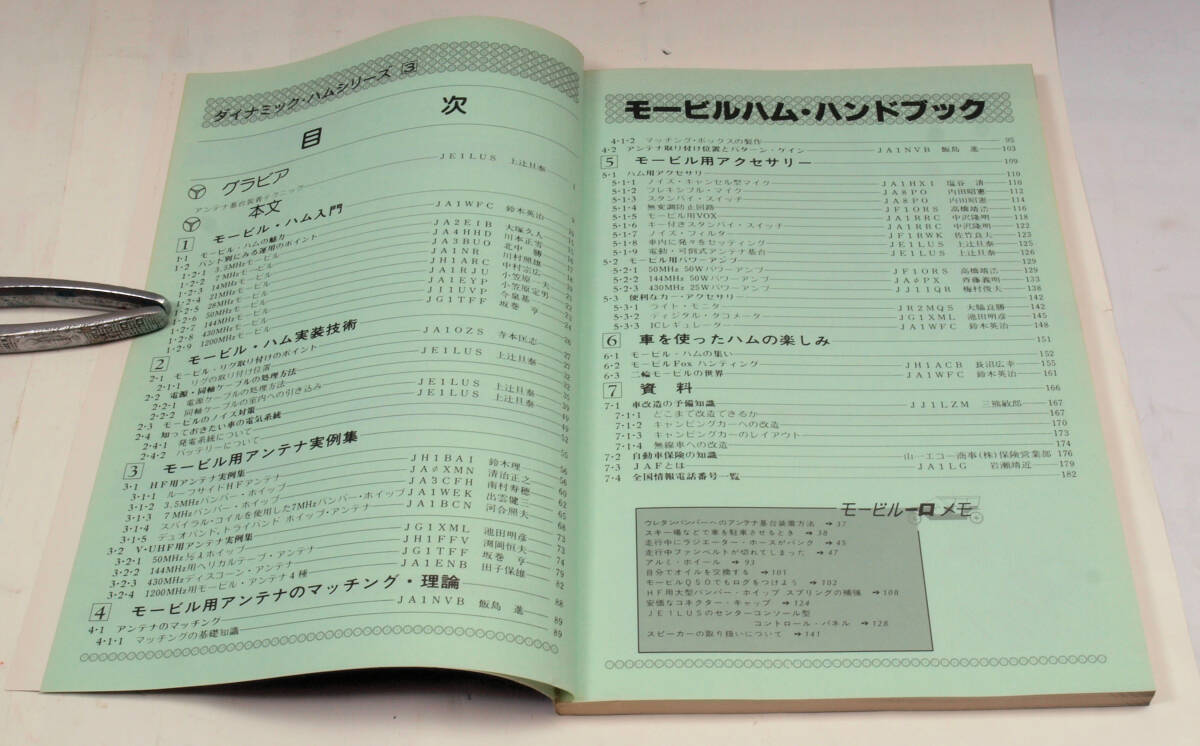 ダイナミック・ハムシリーズ 3
目 次
グラビア
アンテナ基台装着テクニック JE1LUS 上辻旦泰 1
本文
1 モービル・ハム入門
1·1 モービル・ハムの魅力 JA1WFC 鈴木英治
1·2 バンド別にみる運用のポイント
1·2·1 3.5MHzモービル JA2EIB 大塚久人
1·2·2 7MHzモービル JA4HHD 川本正雪
1·2·3 14MHzモービル JA3BUO 北中 勝
1·2·4 21MHzモービル JA1NR 川村照雄
1·2·5 28MHzモービル JH1ARC 中村宗広
1·2·6 50MHzモービル JA1RJU 小笠原一夫
1·2·7 144MHzモービル JA1EYP 小笠原定男
1·2·8 430MHzモービル JI1UVP 今泉基
1·2·9 1200MHzモービル JG1TFF 坂巻 亨
2 モービル・ハム実装技術
2·1 モービル・リグ取り付けのポイント JA1OZS 寺本匡志
2·1·1 リグの取り付け位置
2·2 電源・同軸ケーブルの処理方法 JE1LUS 上辻旦泰
2·2·1 電源ケーブルの処理方法
2·2·2 同軸ケーブルの室内への引き込み
2·3 モービルのノイズ対策 JE1LUS 上辻旦泰
2·4 知っておきたい車の電気系統 JE1LUS 上辻旦泰
2·4·1 発電系統について
2·4·2 バッテリーについて
3 モービル用アンテナ実例集
3·1 HF用アンテナ実例集
3·1·1 ルーフサイドHFアンテナ JH1BAI 鈴木理一 56
3·1·2 3.5MHzバンパー・ホイップ JAφXMN 清治正之 60
3·1·3 7MHzバンパー・ホイップ JA3CFH 南村寿穂 62
3·1·4 スパイラル・コイルを使用した7MHzバンパー・ホイップ JA1WEK 出雲健三 65
3·1·5 デュオバンド、トライバンド ホイップ・アンテナ JA1BCN 河合照夫 68
3·2 V・UHF用アンテナ実例集 73
3·2·1 50MHz½λホイップ JG1XML 池田明彦 73
3·2·2 144MHz用ヘリカルテープ・アンテナ JH1FFV 渕岡恒夫 74
3·2·3 430MHzディスコーン・アンテナ JG1TFF 坂巻 亨 79
3·2·4 1200MHz用モービル・アンテナ4種 JA1ENB 田子保雄 82
4 モービル用アンテナのマッチング・理論 88
4·1 アンテナのマッチング JA1NVB 飯島 進 89
4·1·1 マッチングの基礎知識 89
モービルハム・ハンドブック
4·1·2 マッチング・ボックスの製作 95
4·2 アンテナ取り付け位置とパターン・ゲイン JA1NVB 飯島 進 103
5 モービル用アクセサリー 109
5·1 ハム用アクセサリ 110
5·1·1 ノイズ・キャンセル型マイク JA1HXI 塩谷 清 110
5·1·2 フレキシブル・マイク JA8PO 内田昭憲 112
5·1·3 スタンバイ・スイッチ JA8PO 内田昭憲 114
5·1·4 無変調防止回路 JF1ORS 高橋靖浩 116
5·1·5 モービル用VOX JA1RRC 中沢隆明 118
5·1·6 キー付きスタンバイ・スイッチ JA1RRC 中沢隆明 122
5·1·7 ノイズ・フィルタ JF1RWK 佐竹良夫 123
5·1·8 車内に発々をセッティング JE1LUS 上辻旦泰 125
5·1·9 電動・可倒式アンテナ基台 JE1LUS 上辻旦泰 126
5·2 モービル用パワーアンプ 129
5·2·1 50MHz 50Wパワーアンプ JF1ORS 高橋靖浩 129
5·2·2 144MHz 50Wパワーアンプ JAφPX 斉藤義明 133
5·2·3 430MHz 25Wパワーアンプ JJ1IQR 梅村俊夫 138
5·3 便利なカー・アクセサリー 142
5·3·1 ライト・モニター JR2MQS 大脇良勝 142
5·3·2 ディジタル・タコメータ JG1XML 池田明彦 145
5·3·3 ICレギュレーター JA1WFC 鈴木英治 148
6 車を使ったハムの楽しみ 151
6·1 モービル・ハムの集い 152
6·2 モービルFox ハンティング JH1ACB 長沼広幸 155
6·3 二輪モービルの世界 JA1WFC 鈴木英治 161
7 資 料 166
7·1 車改造の予備知識 JJ1LZM 三熊敏郎 167
7·1·1 どこまで改造できるか 167
7·1·2 キャンピングカーへの改造 170
7·1·3 キャンピングカーのレイアウト 173
7·1·4 無線車への改造 174
7·2 自動車保険の知識 山一エコー商事(株)保険営業部 176
7·3 JAFとは JA1LG 岩瀬靖近 179
7·4 全国情報電話番号一覧 182
モービルー口メモ
ウレタンバンパーへのアンテナ基台装着方法 ➔ 37
スキー場などで車を駐車させるとき ➔ 38
走行中にラジエーター・ホースがパンク ➔ 45
走行中ファンベルトが切れてしまった ➔ 47
アルミ・ホイール ➔ 93
自分でオイルを交換する ➔ 101
モービルQSOでもログをつけよう ➔ 102
HF用大型バンパー・ホイップ スプリングの補強 ➔ 108
安価なコネクター・キャップ ➔ 124
JE1LUSのセンターコンソール型
コントロール・パネル ➔ 128
スピーカーの取り扱いについて ➔ 141